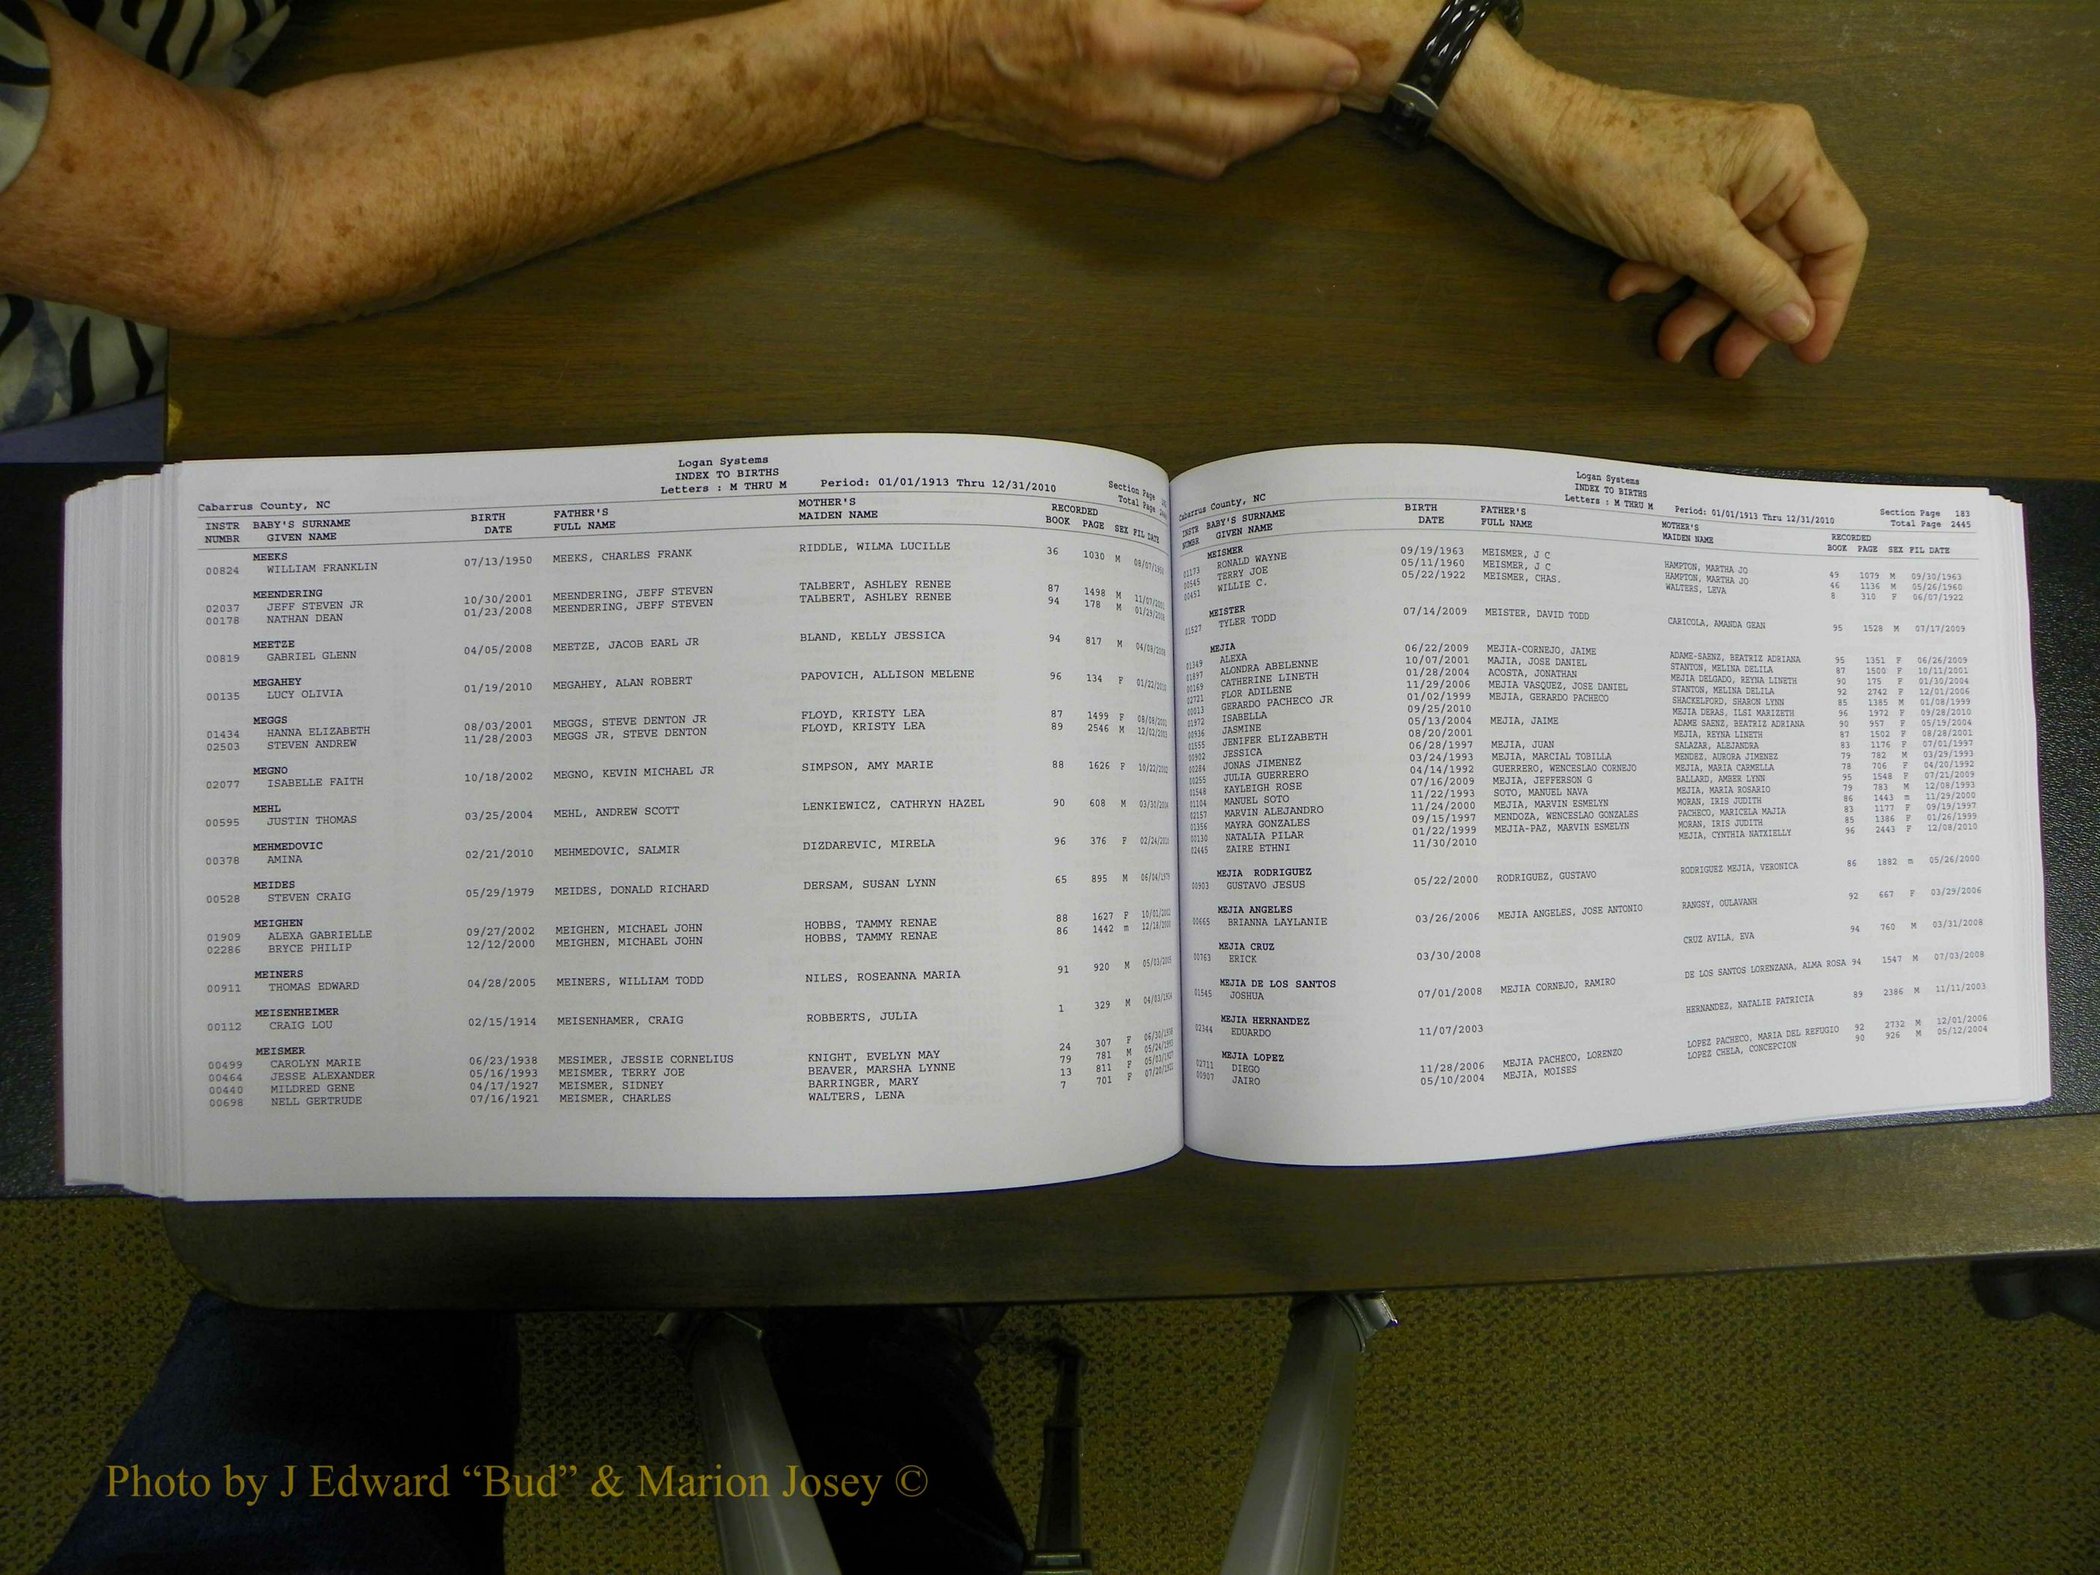 Logan Systems
INDEX TO BIRTHS
Letters : M THRU M Period: 01/01/1913 Thru 12/31/2010
Cabarrus County, NC Section Page
Total Page
INSTR BABY'S SURNAME BIRTH FATHER'S MOTHER'S RECORDED
NUMBR GIVEN NAME DATE FULL NAME MAIDEN NAME BOOK PAGE SEX FIL DATE
MEEKS
00824 WILLIAM FRANKLIN 07/13/1950 MEEKS, CHARLES FRANK RIDDLE, WILMA LUCILLE 36 1030 M 08/07/1950
MEENDERING
02037 JEFF STEVEN JR 10/30/2001 MEENDERING, JEFF STEVEN TALBERT, ASHLEY RENEE 87 1498 M 11/07/2001
00178 NATHAN DEAN 01/23/2008 MEENDERING, JEFF STEVEN TALBERT, ASHLEY RENEE 94 178 M 01/29/2008
MEETZE
00819 GABRIEL GLENN 04/05/2008 MEETZE, JACOB EARL JR BLAND, KELLY JESSICA 94 817 M 04/08/2008
MEGAHEY
00135 LUCY OLIVIA 01/19/2010 MEGAHEY, ALAN ROBERT PAPOVICH, ALLISON MELENE 96 134 F 01/22/2010
MEGGS
01434 HANNA ELIZABETH 08/03/2001 MEGGS, STEVE DENTON JR FLOYD, KRISTY LEA 87 1499 F 08/08/2001
02503 STEVEN ANDREW 11/28/2003 MEGGS JR, STEVE DENTON FLOYD, KRISTY LEA 89 2546 M 12/02/2003
MEGNO
02077 ISABELLE FAITH 10/18/2002 MEGNO, KEVIN MICHAEL JR SIMPSON, AMY MARIE 88 1626 F 10/22/2002
MEHL
00595 JUSTIN THOMAS 03/25/2004 MEHL, ANDREW SCOTT LENKIEWICZ, CATHRYN HAZEL 90 608 M 03/31/2004
MEHMEDOVIC
00378 AMINA 02/21/2010 MEHMEDOVIC, SALMIR DIZDAREVIC, MIRELA 96 376 F 02/24/2010
MEIDES
00528 STEVEN CRAIG 05/29/1979 MEIDES, DONALD RICHARD DERSAM, SUSAN LYNN 65 895 M 06/04/1979
MEIGHEN
01909 ALEXA GABRIELLE 09/27/2002 MEIGHEN, MICHAEL JOHN HOBBS, TAMMY RENAE 88 1627 F 10/01/2002
02286 BRYCE PHILIP 12/12/2000 MEIGHEN, MICHAEL JOHN HOBBS, TAMMY RENAE 86 1442 m 12/18/2000
MEINERS
00911 THOMAS EDWARD 04/28/2005 MEINERS, WILLIAM TODD NILES, ROSEANNA MARIA 91 920 M 05/03/2005
MEISENHEIMER
00112 CRAIG LOU 02/15/1914 MEISENHAMER, CRAIG ROBBERTS, JULIA 1 329 M 04/03/1914
MEISMER
00499 CAROLYN MARIE 06/23/1938 MESIMER, JESSIE CORNELIUS KNIGHT, EVELYN MAY 24 307 F 06/30/1938
00464 JESSE ALEXANDER 05/16/1993 MEISMER, TERRY JOE BEAVER, MARSHA LYNNE 79 781 M 05/24/1993
00440 MILDRED GENE 04/17/1927 MEISMER, SIDNEY BARRINGER, MARY 13 811 F 05/03/1927
00698 NELL GERTRUDE 07/16/1921 MEISMER, CHARLES WALTERS, LENA 7 701 F 07/20/1921
Logan Systems
INDEX TO BIRTHS
Letters : M THRU M Period: 01/01/1913 Thru 12/31/2010
Cabarrus County, NC Section Page 183
Total Page 2445
INSTR BABY'S SURNAME BIRTH FATHER'S MOTHER'S RECORDED
NUMBR GIVEN NAME DATE FULL NAME MAIDEN NAME BOOK PAGE SEX FIL DATE
MEISMER
01173 RONALD WAYNE 09/19/1963 MEISMER, J C HAMPTON, MARTHA JO 49 1079 M 09/30/1963
00545 TERRY JOE 05/11/1960 MEISMER, J C HAMPTON, MARTHA JO 46 1136 M 05/26/1960
00451 WILLIE C. 05/22/1922 MEISMER, CHAS. WALTERS, LEVA 8 310 F 06/07/1922
MEISTER
01527 TYLER TODD 07/14/2009 MEISTER, DAVID TODD CARICOLA, AMANDA GEAN 95 1528 M 07/17/2009
MEJIA
01349 ALEXA 06/22/2009 MEJIA-CORNEJO, JAIME ADAME-SAENZ, BEATRIZ ADRIANA 95 1351 F 06/26/2009
01897 ALONDRA ABELENNE 10/07/2001 MAJIA, JOSE DANIEL STANTON, MELINA DELILA 87 1500 F 10/11/2001
00169 CATHERINE LINETH 01/28/2004 ACOSTA, JONATHAN MEJIA DELGADO, REYNA LINETH 90 175 F 01/30/2004
02721 FLOR ADILENE 11/29/2006 MEJIA VASQUEZ, JOSE DANIEL STANTON, MELINA DELILA 92 2742 F 12/01/2006
00013 GERARDO PACHECO JR 01/02/1999 MEJIA, GERARDO PACHECO SHACKELFORD, SHARON LYNN 85 1385 M 01/08/1999
01972 ISABELLA 09/25/2010 MEJIA DERAS, ILSI MARIZETH 96 1972 F 09/28/2010
00936 JASMINE 05/13/2004 MEJIA, JAIME ADAME SAENZ, BEATRIZ ADRIANA 90 957 F 05/19/2004
01555 JENIFER ELIZABETH 08/20/2001 MEJIA, REYNA LINETH 87 1502 F 08/28/2001
00902 JESSICA 06/28/1997 MEJIA, JUAN SALAZAR, ALEJANDRA 83 1176 F 07/01/1997
00284 JONAS JIMENEZ 03/24/1993 MEJIA, MARCIAL TOBILLA MENDEZ, AURORA JIMENEZ 79 782 M 03/29/1993
00255 JULIA GUERRERO 04/14/1992 GUERRERO, WENCESLAO CORNEJO MEJIA, MARIA CARMELLA 78 706 F 04/20/1992
01548 KAYLEIGH ROSE 07/16/2009 MEJIA, JEFFERSON G BALLARD, AMBER LYNN 95 1548 F 07/21/2009
01104 MANUEL SOTO 11/22/1993 SOTO, MANUEL NAVA MEJIA, MARIA ROSARIO 79 783 M 12/08/1993
02157 MARVIN ALEJANDRO 11/24/2000 MEJIA, MARVIN ESMELYN MORAN, IRIS JUDITH 86 1443 m 11/29/2000
01356 MAYRA GONZALES 09/15/1997 MENDOZA, WENCESLAO GONZALES PACHECO, MARICELA MAJIA 83 1177 F 09/19/1997
00130 NATALIA PILAR 01/22/1999 MEJIA-PAZ, MARVIN ESMELYN MORAN, IRIS JUDITH 85 1386 F 01/26/1999
02445 ZAIRE ETHNI 11/30/2010 MEJIA, CYNTHIA NATXIELLY 96 2443 F 12/08/2010
MEJIA RODRIGUEZ
00903 GUSTAVO JESUS 05/22/2000 RODRIGUEZ, GUSTAVO RODRIGUEZ MEJIA, VERONICA 86 1882 m 05/26/2000
MEJIA ANGELES
00665 BRIANNA LAYLANIE 03/26/2006 MEJIA ANGELES, JOSE ANTONIO RANGSY, OULAVANH 92 667 F 03/29/2006
MEJIA CRUZ
00763 ERICK 03/30/2008 CRUZ AVILA, EVA 94 760 M 03/31/2008
MEJIA DE LOS SANTOS
01545 JOSHUA 07/01/2008 MEJIA CORNEJO, RAMIRO DE LOS SANTOS LORENZANA, ALMA ROSA 94 1547 M 07/03/2008
MEJIA HERNANDEZ
02344 EDUARDO 11/07/2003 HERNANDEZ, NATALIE PATRICIA 89 2386 M 11/11/2003
MEJIA LOPEZ
02711 DIEGO 11/28/2006 MEJIA PACHECO, LORENZO LOPEZ PACHECO, MARIA DEL REFUGIO 92 2732 M 12/01/2006
00907 JAIRO 05/10/2004 MEJIA, MOISES LOPEZ CHELA, CONCEPCION 90 926 M 05/12/2004
Photo by J Edward “Bud” & Marion Josey ©